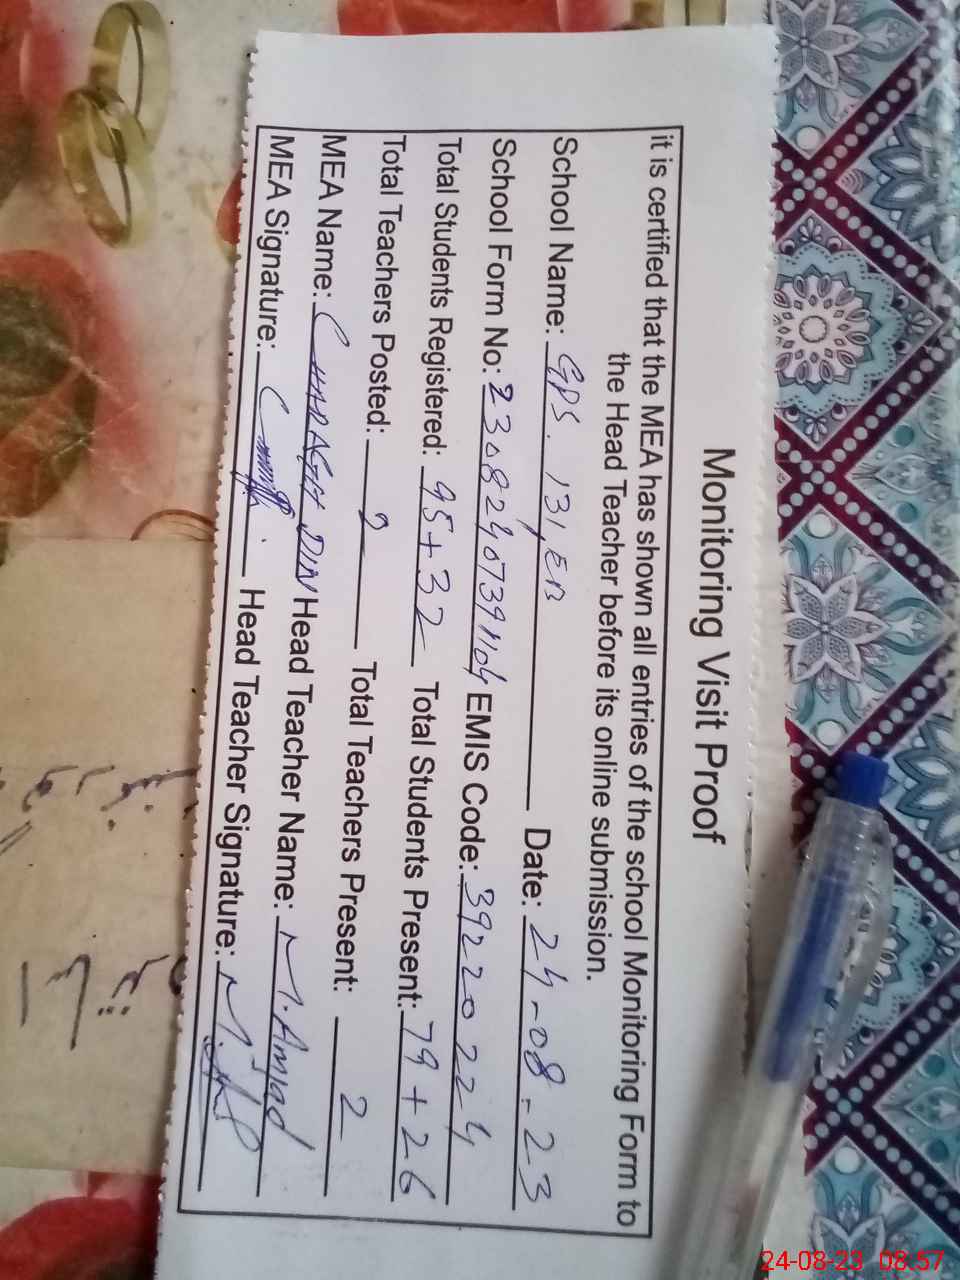 Monitoring Visit Proof
it is certified that the MEA has shown all entries of the school Monitoring Form to
the Head Teacher before its online submission.
School Name: GPS. 131, EB Date: 24-08-23
School Form No: 23082407391104 EMIS Code: 39220224
Total Students Registered: 95+32 Total Students Present: 79+26
Total Teachers Posted: 2 Total Teachers Present: 2
MEA Name: CHIRAGH DIN Head Teacher Name: M. Amjad
MEA Signature: Head Teacher Signature:
24-08-23 08.57